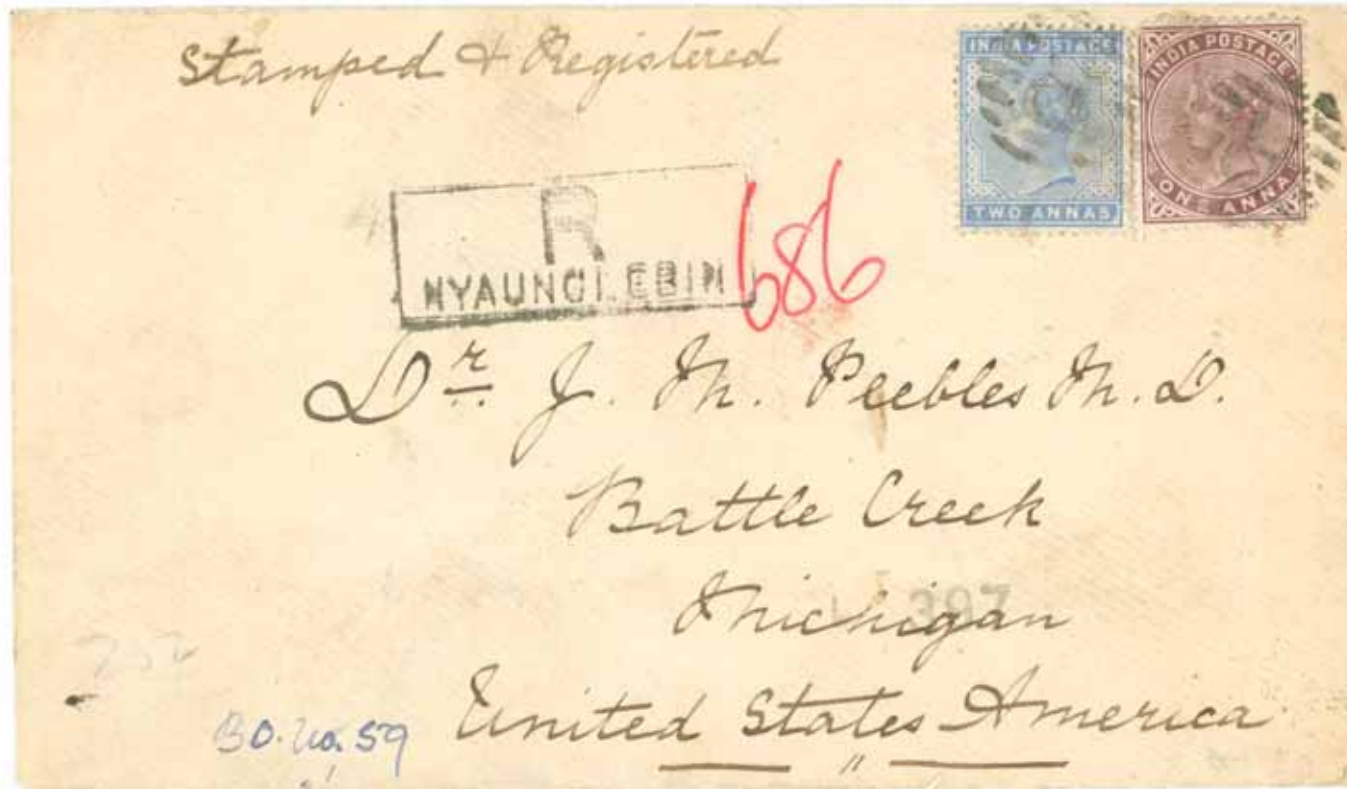 Stamped & Registered
INDIA POSTAGE
TWO ANNAS
INDIA POSTAGE
ONE ANNA
R
NYAUNGLEBIN
686
Dr. J. M. Peebles M. D.
Battle Creek
Michigan
397
United States America
B O. No. 59